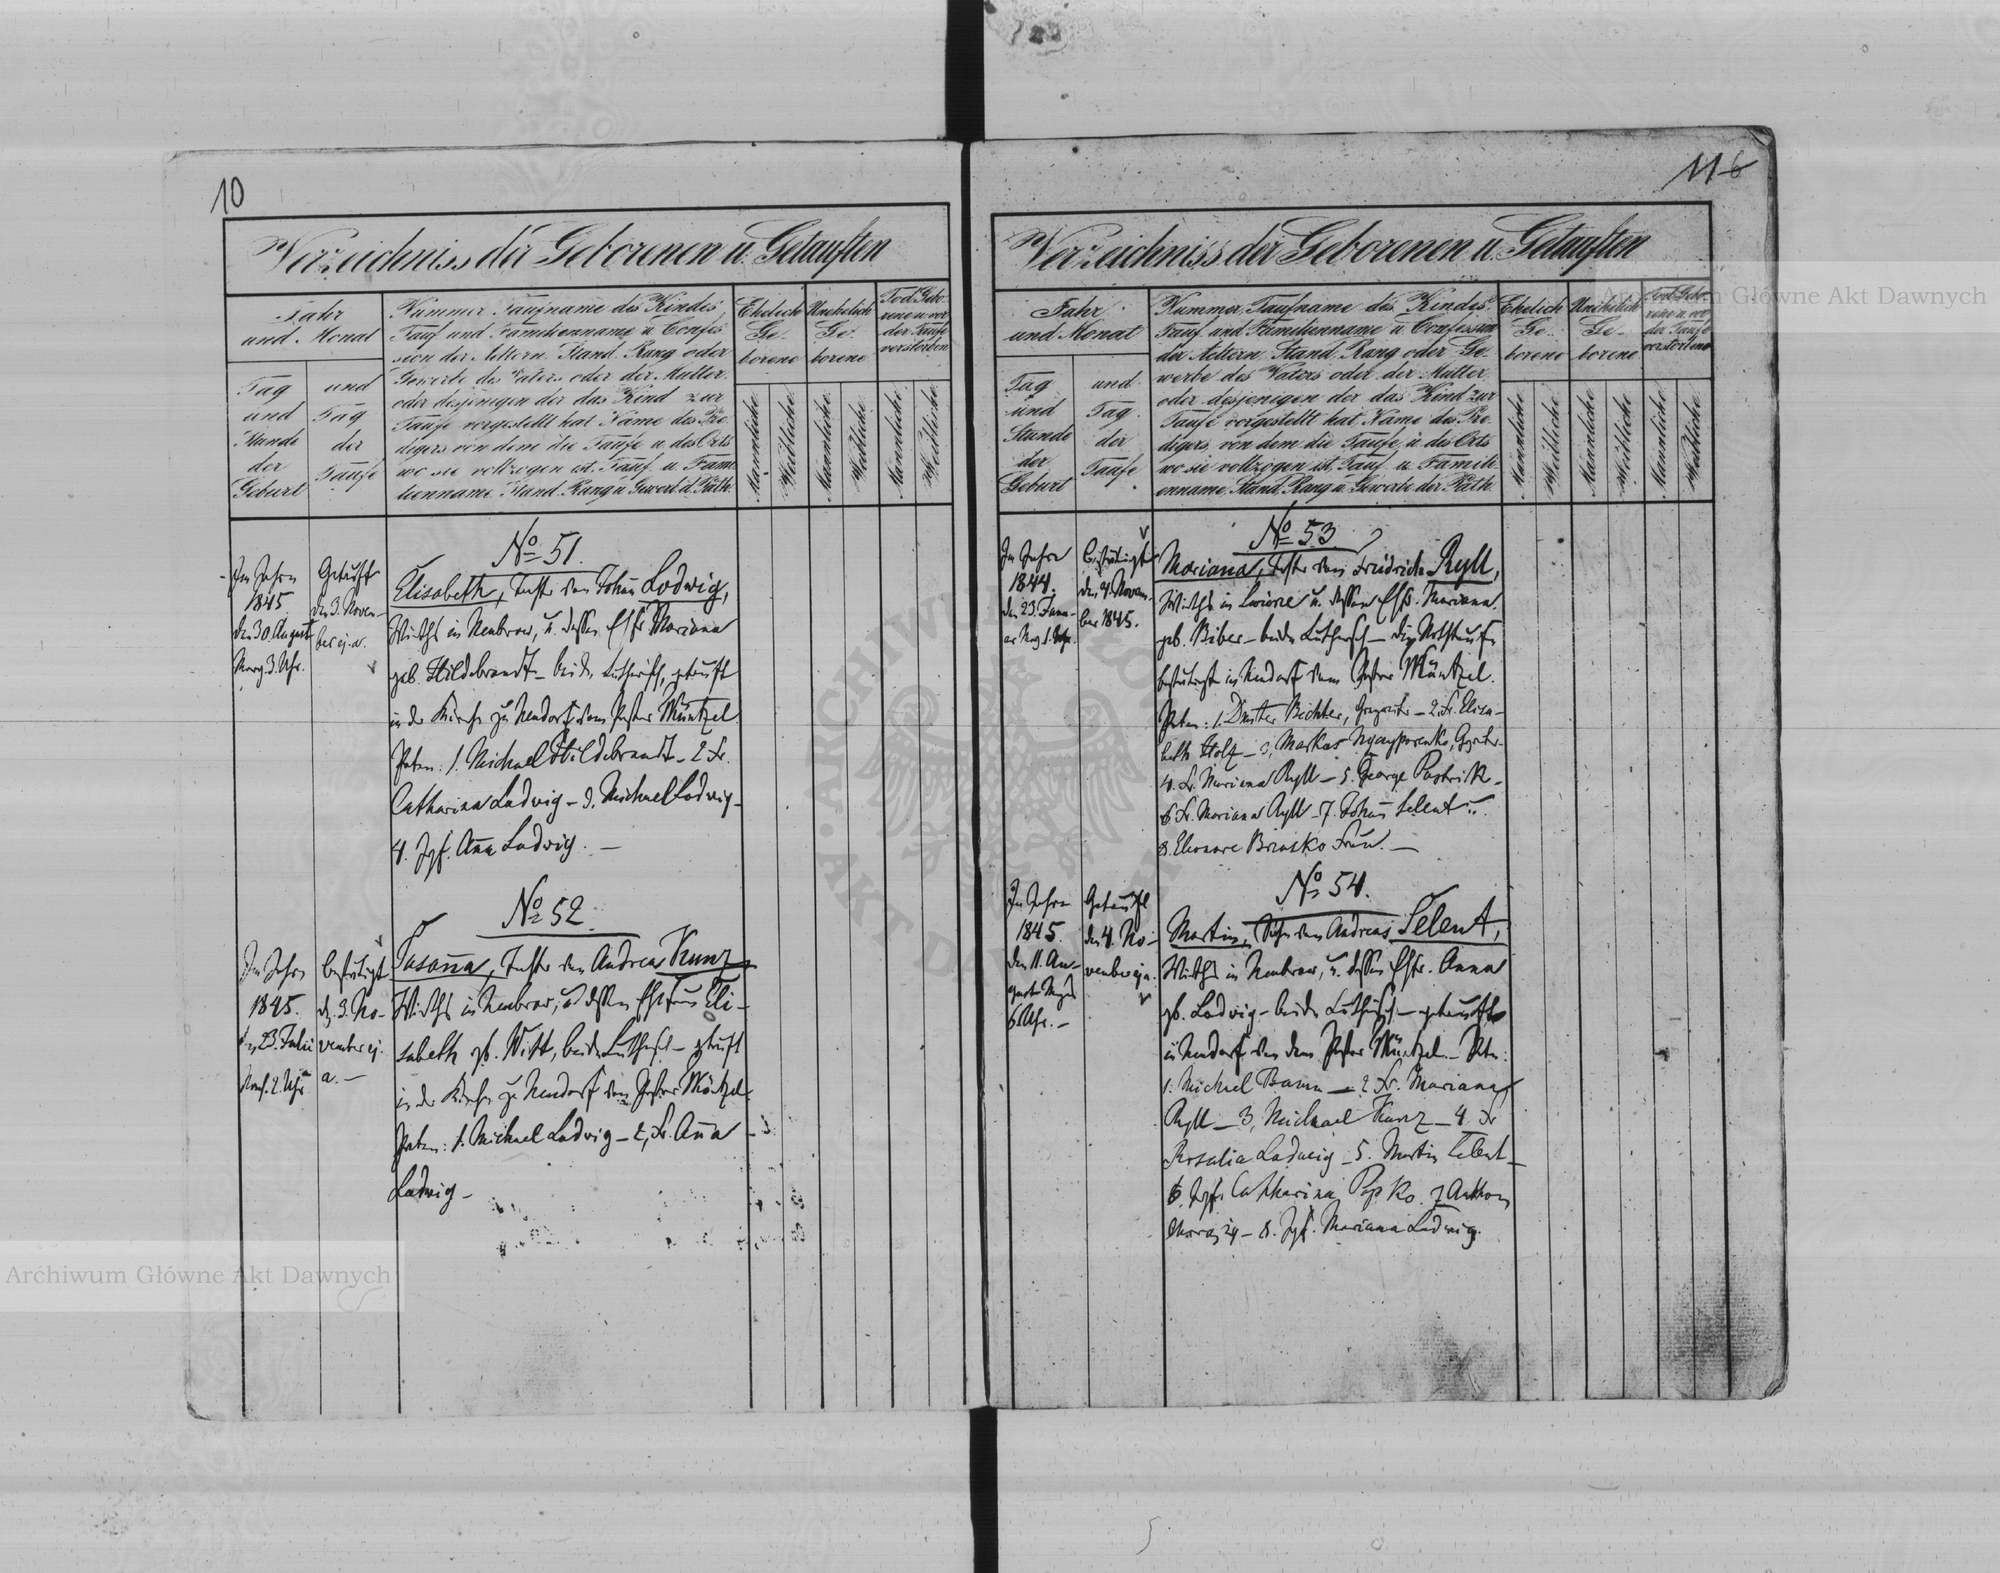 10
Verzeichniss der Geborenen u. Getauften
Jahr
und Monat
Tag
und
Stunde
der
Geburt
und
Tag
der
Taufe
Nummer Taufname des Kindes,
Tauf und Familienname u Confes
sion der Aeltern. Stand. Rang oder
Gewerbe des Vaters oder der Mutter.
oder desjenigen der das Kind zur
Taufe vorgestellt hat Name des Pre
digers von dem die Taufe u des Orts
wo sie vollzogen ist. Tauf. u. Fami
lienname. Stand. Rang u Gewerb. d. Path.
Ehelich
Ge-
borene
Unehelich
Ge-
borene
Tod Gebo-
rene u. vor
der Taufe
verstorben
Männliche
Weibliche
Männliche
Weibliche
Männliche
Weibliche
Im Jahre
1845.
den 30. August
Morg. 3. Uhr.
Getauft
den 3. Novem-
ber ej. a.
No 51.
Elisabeth, Tochter des Johan Lodwig,
Wirths in Neubrow, u. dessen Ehfr Mariana
geb. Hildebrandt - beide Lutherisch, getauft
in der Kirche zu Neudorf vom Pastor Müntzel.
Paten: 1. Michael Hildebrandt - 2 Fr.
Catharina Ludwig - 3. Michael Lodwig -
4. Jgf. Anna Ludwig. -
Im Jahre
1845.
23. Julii
Nach. 2. Uhr
bestätigt
d. 3. No-
vember ej.
a. -
No 52.
Susanna, Tochter des Andreas Kunz,
Wirths in Neubrow, u dessen Ehefrau Eli-
sabeth gb. Witt, beide Luthersch - getauft
in der Kirche zu Neudorf vom Pastor Müntzel.
Paten: 1. Michael Ludwig - 2, Fr. Anna
Ludwig -
11
6
Verzeichniss der Geborenen u. Getauften
Jahr
und Monat
Tag
und
Stunde
der
Geburt
und
Tag
der
Taufe
Nummer, Taufname des Kindes,
Tauf und Familienname u. Confession
der Aeltern. Stand. Rang oder Ge-
werbe des Vaters oder der Mutter
oder desjenigen der das Kind zur
Taufe vorgestellt hat, Name des Pre
digers, von dem die Taufe, u. des Orts
wo sie vollzogen ist, Tauf. u. Famili
enname, Stand, Rang u. Gewerbe der Path.
Ehelich
Ge-
borene
Unehelich
Ge-
borene
Tod Gebo-
rene u. vor
der Taufe
verstorbene
Männliche
Weibliche
Männliche
Weibliche
Männliche
Weibliche
Im Jahre
1844.
den 23. Janu-
ar Mrg 1. Uhr.
Bestätigt
den 4. Novem-
ber 1845.
No 53
Mariana, Tochter des Friedrich Ryll,
Wirths in u. dessen Ehfr. Mariana
geb. Biber - beide Luthersch - die Nothtaufe
bestätigt in Neudorf vom Pastor Müntzel.
Paten: 1. Dmiter Bichter, - 2. Fr. Elisa-
beth Holz - 3, Markus
4. Fr. Mariana Ryll - 5. George Pastrik -
6 Fr. Mariana Ryll - 7. Johan Selent u.
8. Eleonore Frau. -
Im Jahre
1845.
den 11. Au-
gust Mrgs
6 Uhr. -
Getauft
den 4. No-
vember ej a.
No 54.
Martin, Sohn des Andreas Selent,
Wirths in Neubrow, u. dessen Ehfr. Anna
gb. Ludwig - beide Luthersch - getauft
in Neudorf von dem Pastor Müntzel. - Patn:
1. Michael Baum - 2 Fr. Mariana
Ryll - 3, Michael Kunz - 4 Fr
Rosalia Ludwig - 5. Martin Selent -
6. Jgfr. Catharina Popko. 7 Anthon
- 8. Jgf. Mariana Ludwig.
Archiwum Główne Akt Dawnych
Archiwum Główne Akt Dawnych